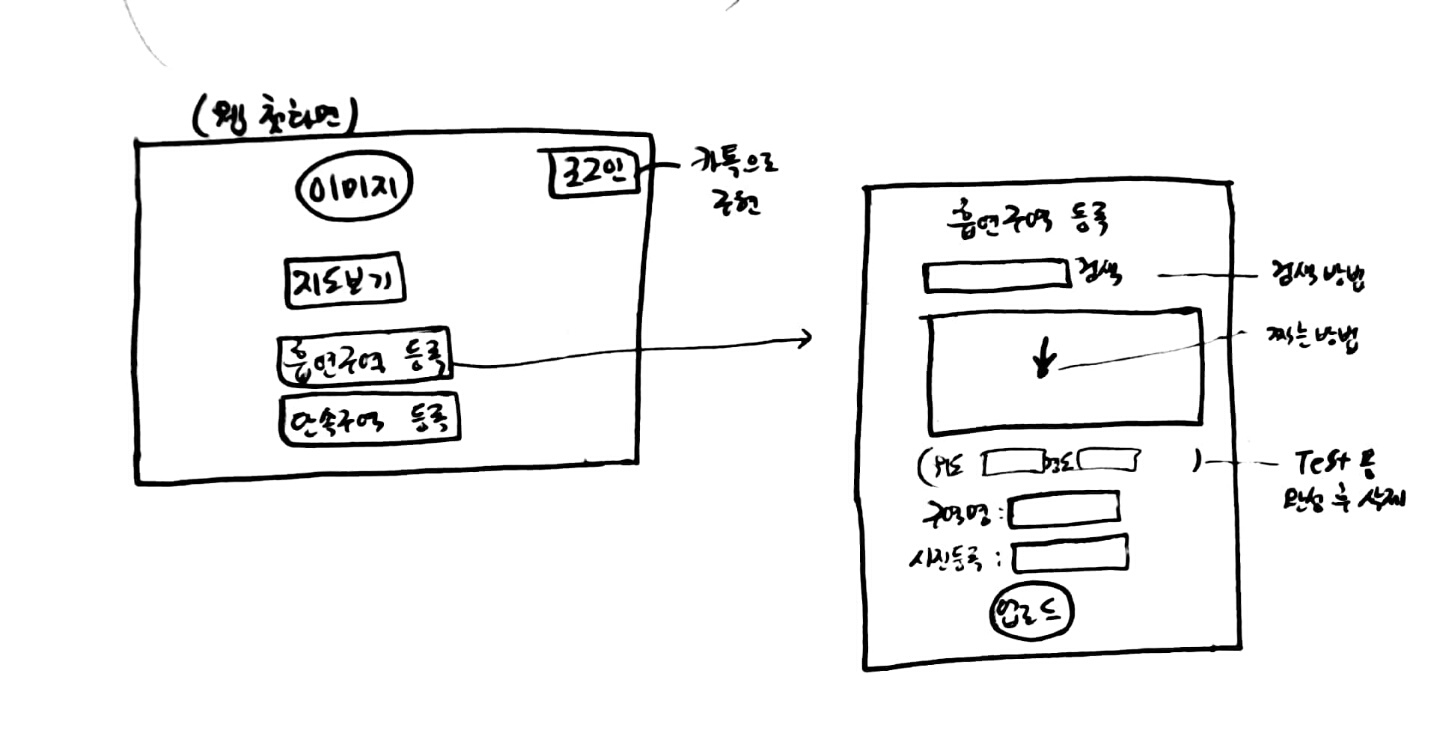 (웹 첫화면)
이미지
로그인
카톡으로
구현
지도보기
흡연구역 등록
단속구역 등록
흡연구역 등록
검색
검색방법
찍는방법
(위도 경도 )
Test용
완성 후 삭제
구역명:
사진등록:
업로드